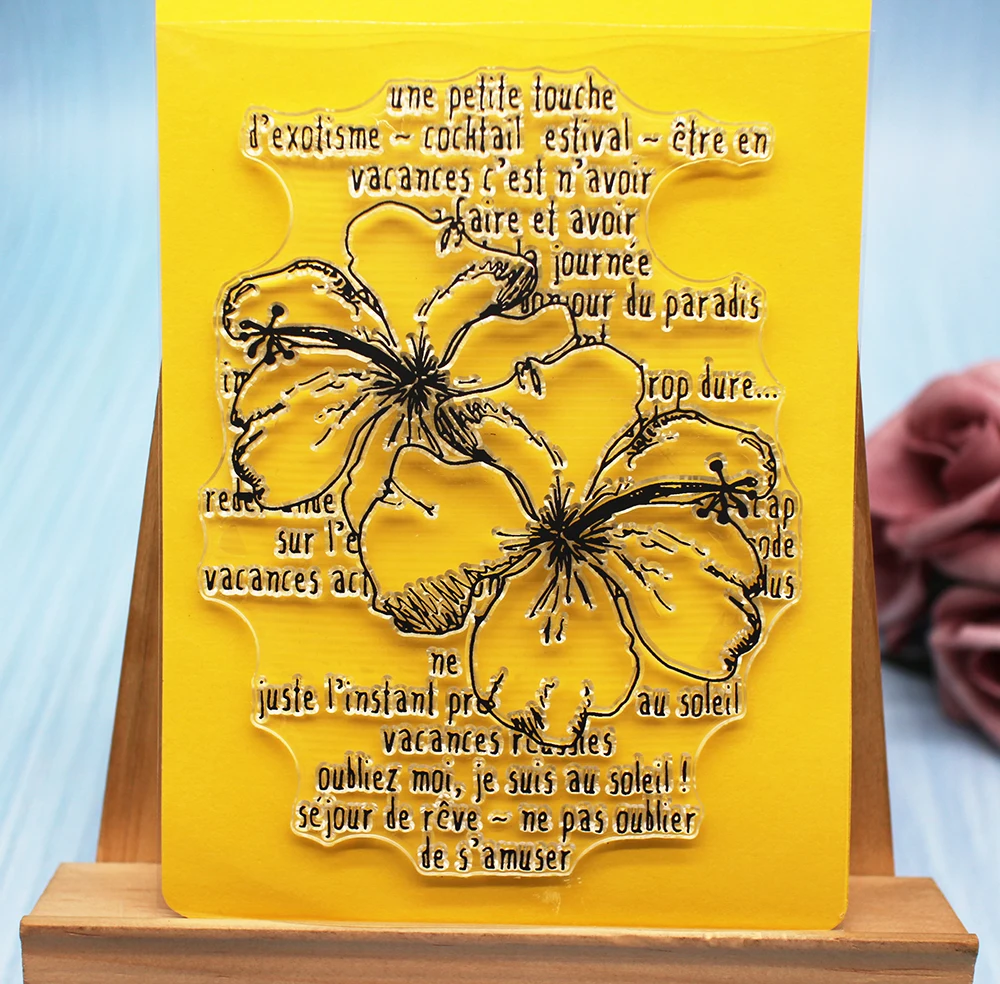 une petite touche
d'exotisme ~ cocktail estival ~ être en
vacances c'est n'avoir
faire et avoir
journée
du paradis
dure...
sur l'e
vacances
ne
juste l'instant au soleil
vacances
oubliez moi, je suis au soleil !
séjour de rêve ~ ne pas oublier
de s'amuser